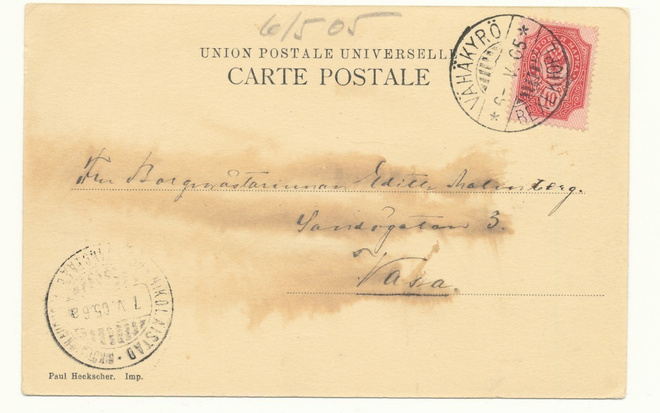 6/5 05
UNION POSTALE UNIVERSELLE
CARTE POSTALE
VÄHÄKYRÖ
6 V. 05
10
Fru Borgmästarinnan Edith Malmberg.
Sandögatan 3.
Vasa.
NIKOLAISTAD
7. V. 05. 6
Paul Heckscher. Imp.